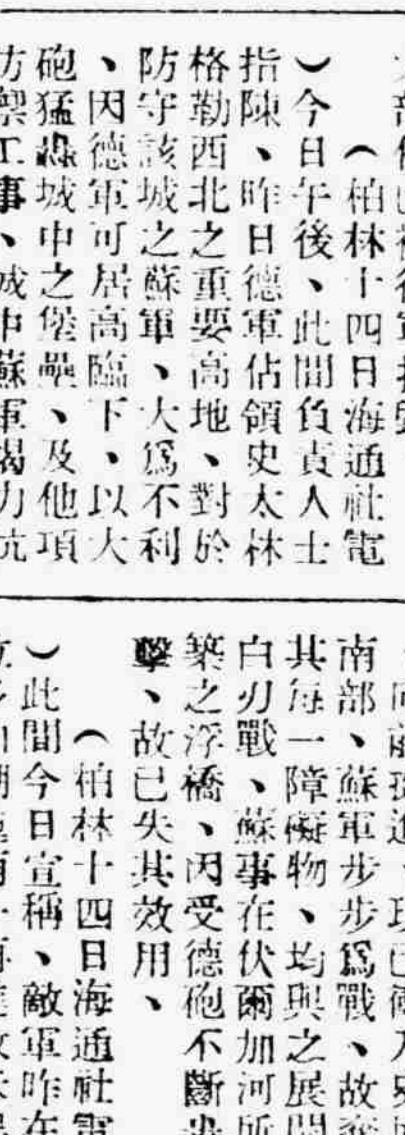 （柏林十四日海通社電
）今日午後、此間負責人士
指陳、昨日德軍佔領史太林
格勒西北之重要高地、對於
防守該城之蘇軍、大爲不利
、因德軍可居高臨下、以大
砲猛轟城中之堡壘、及他項
防禦工事、城中蘇軍竭力抗
南部、蘇軍步步爲戰、故
其每一障礙物、均與之展開
白刃戰、蘇事在伏爾加河所
築之浮橋、因受德砲不斷
擊、故已失其效用、
（柏林十四日海通社電
）此間今日宣稱、敵軍昨在